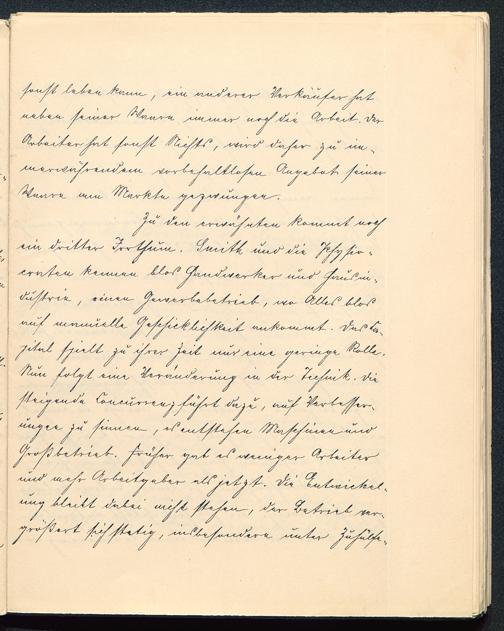 sonst leben kann, ein anderer Verkäufer hat
neben seiner Waare immer noch die Arbeit. Der
Arbeiter hat sonst Nichts, wird daher zu im-
merwährendem vorbehaltlosen Angebot seiner
Waare am Markte gezwungen.
Zu den erwähnten kommt noch
ein dritter Irrthum. Smith und die Physio-
craten kennen blos Handwerker und Hausin-
dustrie, einen Gewerbebetrieb, wo Alles blos
auf manuelle Geschicklichkeit ankommt. Das Ca-
pital spielt zu ihrer Zeit nur eine geringe Rolle.
Nun folgt eine Veränderung in der Technik. Die
steigende Concurrenz führt dazu, auf Verbesser-
ungen zu sinnen, es entstehen Maschinen und
Großbetrieb. Früher gab es weniger Arbeiter
und mehr Arbeitgeber als jetzt. Die Entwickel-
ung bleibt dabei nicht stehen, der Betrieb ver-
größert sich stetig, insbesondere unter Zuhülfe-